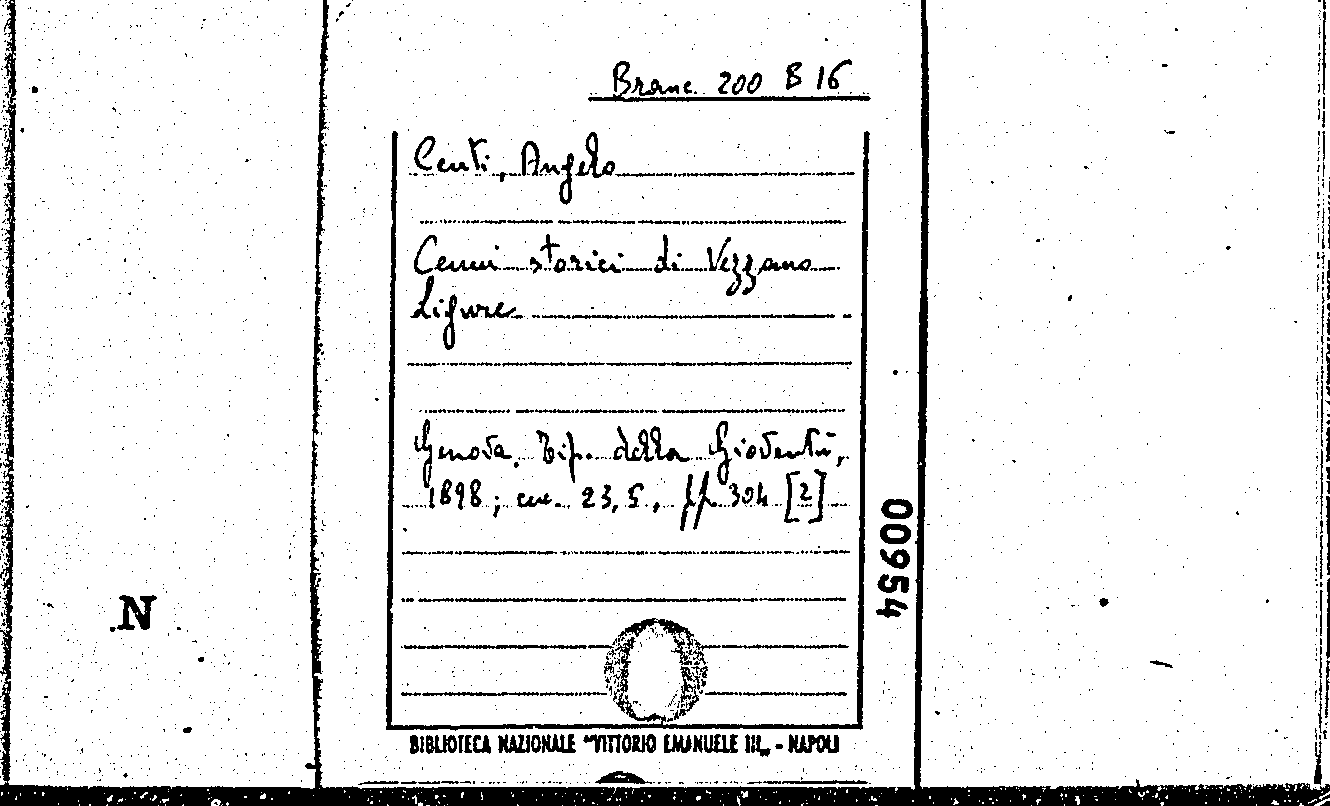 Branc. 200 B 16
Centi, Angelo
Cenni storici di Vezzano
Ligure
Genova, Tip. della Gioventù,
1898; cm. 23,5, pp. 304 [2]
00954
N
BIBLIOTECA NAZIONALE "VITTORIO EMANUELE III„ - NAPOLI